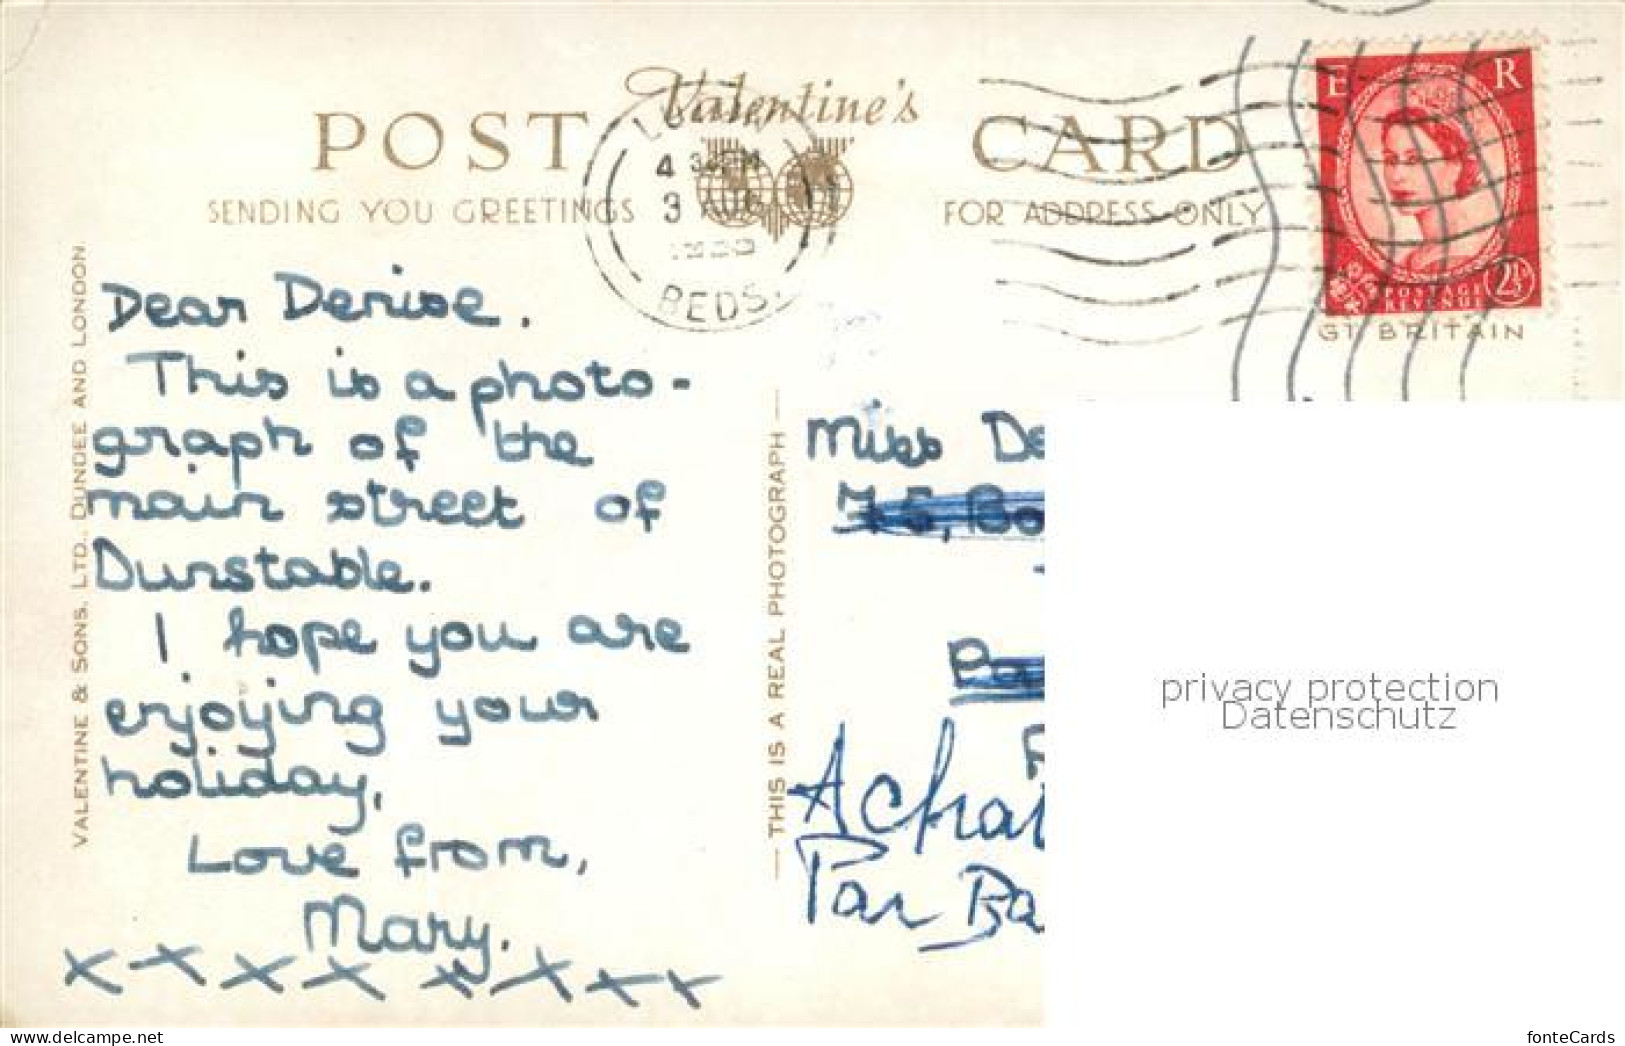 Valentine's
POST CARD
SENDING YOU GREETINGS
FOR ADDRESS ONLY
4 30 PM
3
BEDS.
E R
POSTAGE
REVENUE
2½D
GT BRITAIN
VALENTINE & SONS. LTD. DUNDEE AND LONDON.
Dear Denise,
This is a photo-
graph of the
main street of
Dunstable.
I hope you are
enjoying your
holiday,
Love from,
Mary.
x x x x x x x x
— THIS IS A REAL PHOTOGRAPH —
Miss De
75, Bo
Pa
Achat
Par Ba
privacy protection
Datenschutz
fonteCards